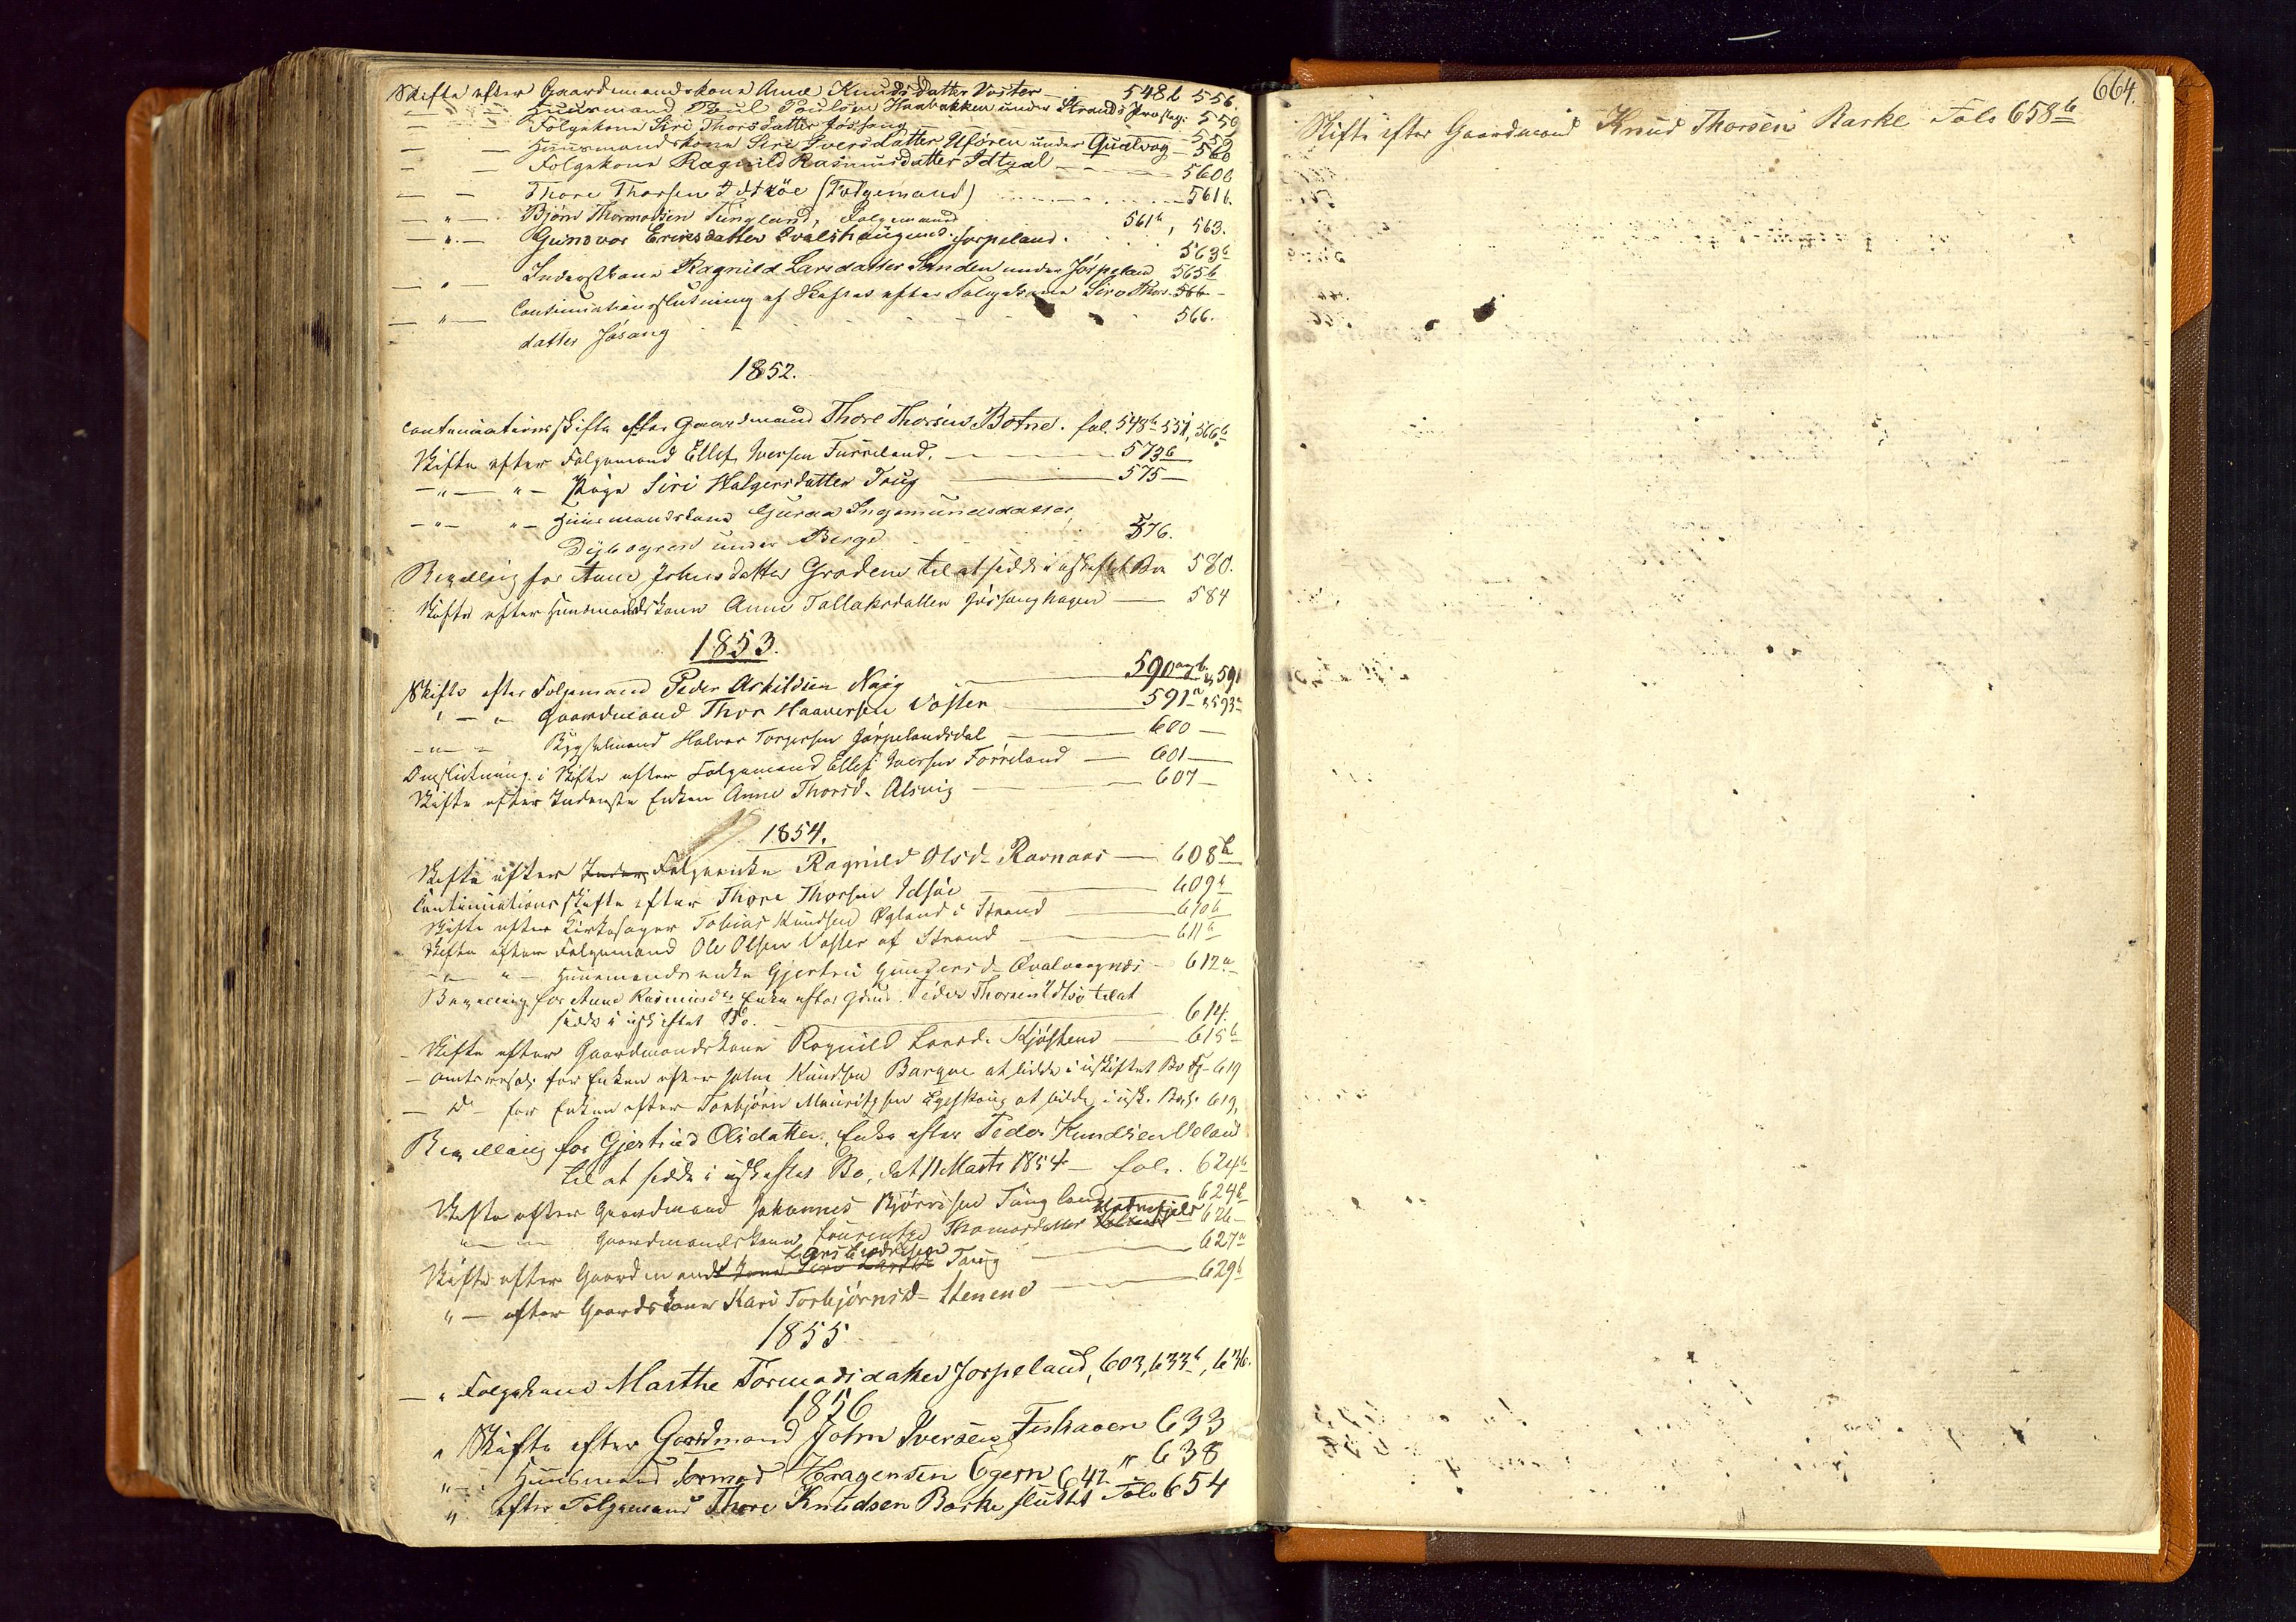 Skifte efter Gaardmandskone Anne Knudsdatter Voster 548b 556.
— — Huusmand Poul Poulsen Haabakken under Strands Præsteg: 559
— — Folgekone Siri Thorsdatter Jøssang 559
— — Huusmandskone Siri Iversdatter under Qualvog — 560
— — Folgekone Ragnild Rasmusdatter Idtzal 560b
— — Thore Thorsen Idsöe (Folgemand) 561b.
— " — Bjørn Thormodsen Tungland, Folgemand 561b, 563.
— " — Gunvor Ericsdatter und. Jorpeland. 563b
— " — Inderstkone Ragnild Larsdatter Sanden under Jörpeland 565b
— " — Continuationsslutning af Skiftet efter Folgekone Siri Thors- 566
datter Jösang 566.
1852.
Continuationsskifte efter Gaardmand Thore Thorsen Botne. fol. 548b 551, 566b
Skifte efter Folgemand Ellef Iversen Furreland. 573b
— " — " — Pige Siri Halgersdatter Toug 575 —
— " — " — Huusmandskone Guroe Ingemundsdatter
Dybogren under Berge 576.
Bevilling for Anne Johnsdatter Groden til at sidde i uskiftet Bo 580.
Skifte efter Huusmandskone Anne Tallaksdatter Jössanghagen — 584
1853.
Skifte efter Folgemand Peder Askildsen Nag 590 og b. & 591
" — " Gaardmand Thor Haaversen Voster 591a & 593a
— " — Bygselmand Halvor Torgersen Jørpelandsdal 600 —
Omslutning i Skifte efter Folgemand Ellef Iversen Förreland — 601 —
Skifte efter Inderste Enken Anne Thorsd. Alsvig 607 —
1854.
Skifte efter Inder Folgeenke Ragnild Olsd. Ravnaas — 608b
Continuationsskifte efter Thore Thorsen Idsöe 609b
Skifte efter Kirkesanger Tobias Knudsen Øgland i Strand 610b
Skifte efter Folgemand Ole Olsen Voster af Strand 611b
— " — " — Huusmandsenke Gjertrud Gundersd. Qvalvaagnes — 612a
Bevilling for Anne Rasmusdr. Enke efter Gdmd. Peder Thorsen Idsö til at
sidde i uskiftet Bo. 614.
— Skifte efter Gaardmandskone Ragnild Larsd. Kjösteno — 615b
— Amtsresol: for Enken efter John Knudsen Barque at sidde i uskiftet Bo — 619
— D — for Enken efter Torbjörn Mauritzsen Egeskoug at sidde i usk. Bo f. 619,
Bevilling for Gjertrud Olsdatter, Enke efter Peder Knudsen Veland
til at sidde i uskiftet Bo, dat 11 Marts 1854 — fol. 624b
Skifte efter Gaardmand Johannes Bjørnsen Tungland 624b
— " — " — Gaardmandskone Laurentze Thomasdatter 626 —
Lars Endresen
Skifte efter Gaardmands kone Siri Larsd: Toug 627a
" — efter Gaardskone Kari Torbjörnsd — Stenene 629b
1855
— " Folgekone Marthe Tormodsdatter Jorpeland, 603, 633b, 636.
1856
" Skifte efter Gaardmand John Iversen Fiskaaen 633
" — Huusmand Tormod Haagensen Egern 642 " 638
" efter Folgemand Thore Knudsen Barke sluttet Fol: 654
664.
Skifte efter Gaardmand Knud Thorsen Barke Fol: 658b